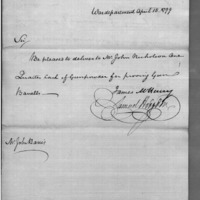 War department April 18. 1799
Sir,
Be pleased to deliver to Mr. John Nicholson One
Quarter Cask of Gunpowder for proving Gun
Barrels.
James McHenry
Samuel
Mr. John Harris